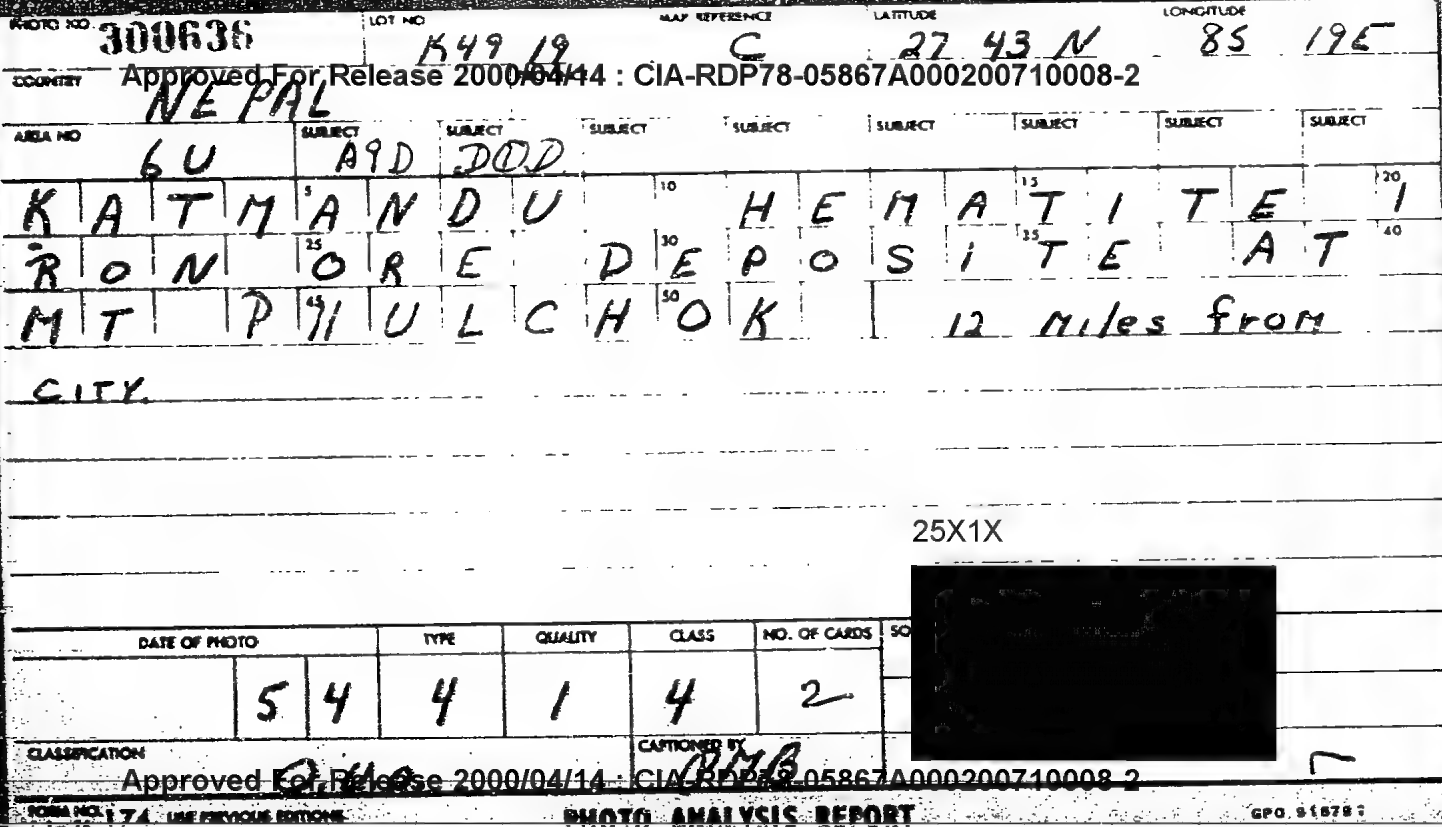 PHOTO NO. 300636 LOT NO K49 19 MAP REFERENCE C LATITUDE 27 43 N LONGITUDE 85 19E
Approved For Release 2000/04/14 : CIA-RDP78-05867A000200710008-2
COUNTRY NEPAL
AREA NO 6U SUBJECT A9D SUBJECT DOD SUBJECT SUBJECT SUBJECT SUBJECT SUBJECT SUBJECT
KATM 5 ANDU 10 HEMA 15 TITE 20 I
RON 25 ORE D 30 EPOSI 35 TE AT 40
MT P 45 HULCH 50 OK 12 Miles from
CITY.
25X1X
DATE OF PHOTO TYPE QUALITY CLASS NO. OF CARDS SO
5 4 4 1 4 2
CLASSIFICATION CAPTIONED BY
Approved For Release 2000/04/14 : CIA-RDP78-05867A000200710008-2
FORM NO. 174 USE PREVIOUS EDITIONS PHOTO ANALYSIS REPORT GPO